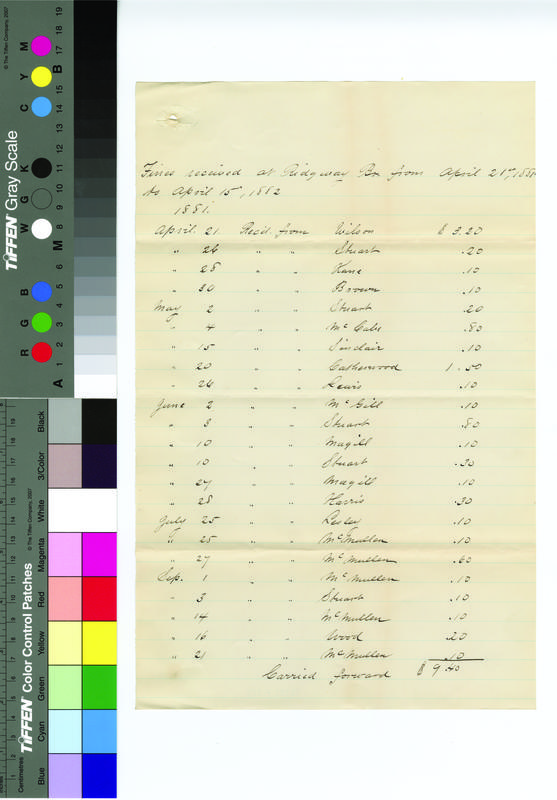 Fines received at Ridgway Br. from April 21st, 1881
to April 15, 1882
1881.
April. 21 Recd. from Wilson $ 3.20
" 26 " " Stuart .20
" 28 " " Kane .10
" 30 " " Brown .10
May 2 " " Stuart .20
" 4 " " McCabe .80
" 15 " " Sinclair .10
" 20 " " Catherwood 1.50
" 26 " " Lewis .10
June 2 " " McGill .10
" 3 " " Stuart .80
" 10 " " Magill .10
" 10 " " Stuart .30
" 27 " " Magill .10
" 28 " " Harris .30
July 25 " " Lesley .10
" 25 " " McMullen .10
" 27 " " McMullen .60
Sep. 1 " " McMullen .10
" 3 " " Stuart .10
" 14 " " McMullen .10
" 16 " " Wood .20
" 21 " " McMullen .10
Carried forward $ 9.40
TIFFEN Gray Scale
© The Tiffen Company, 2007
R G B W G K C Y M
A 1 2 3 4 5 6 M 8 9 10 11 12 13 14 15 B 17 18 19
TIFFEN Color Control Patches
© The Tiffen Company, 2007
Centimetres
Blue Cyan Green Yellow Red Magenta White 3/Color Black